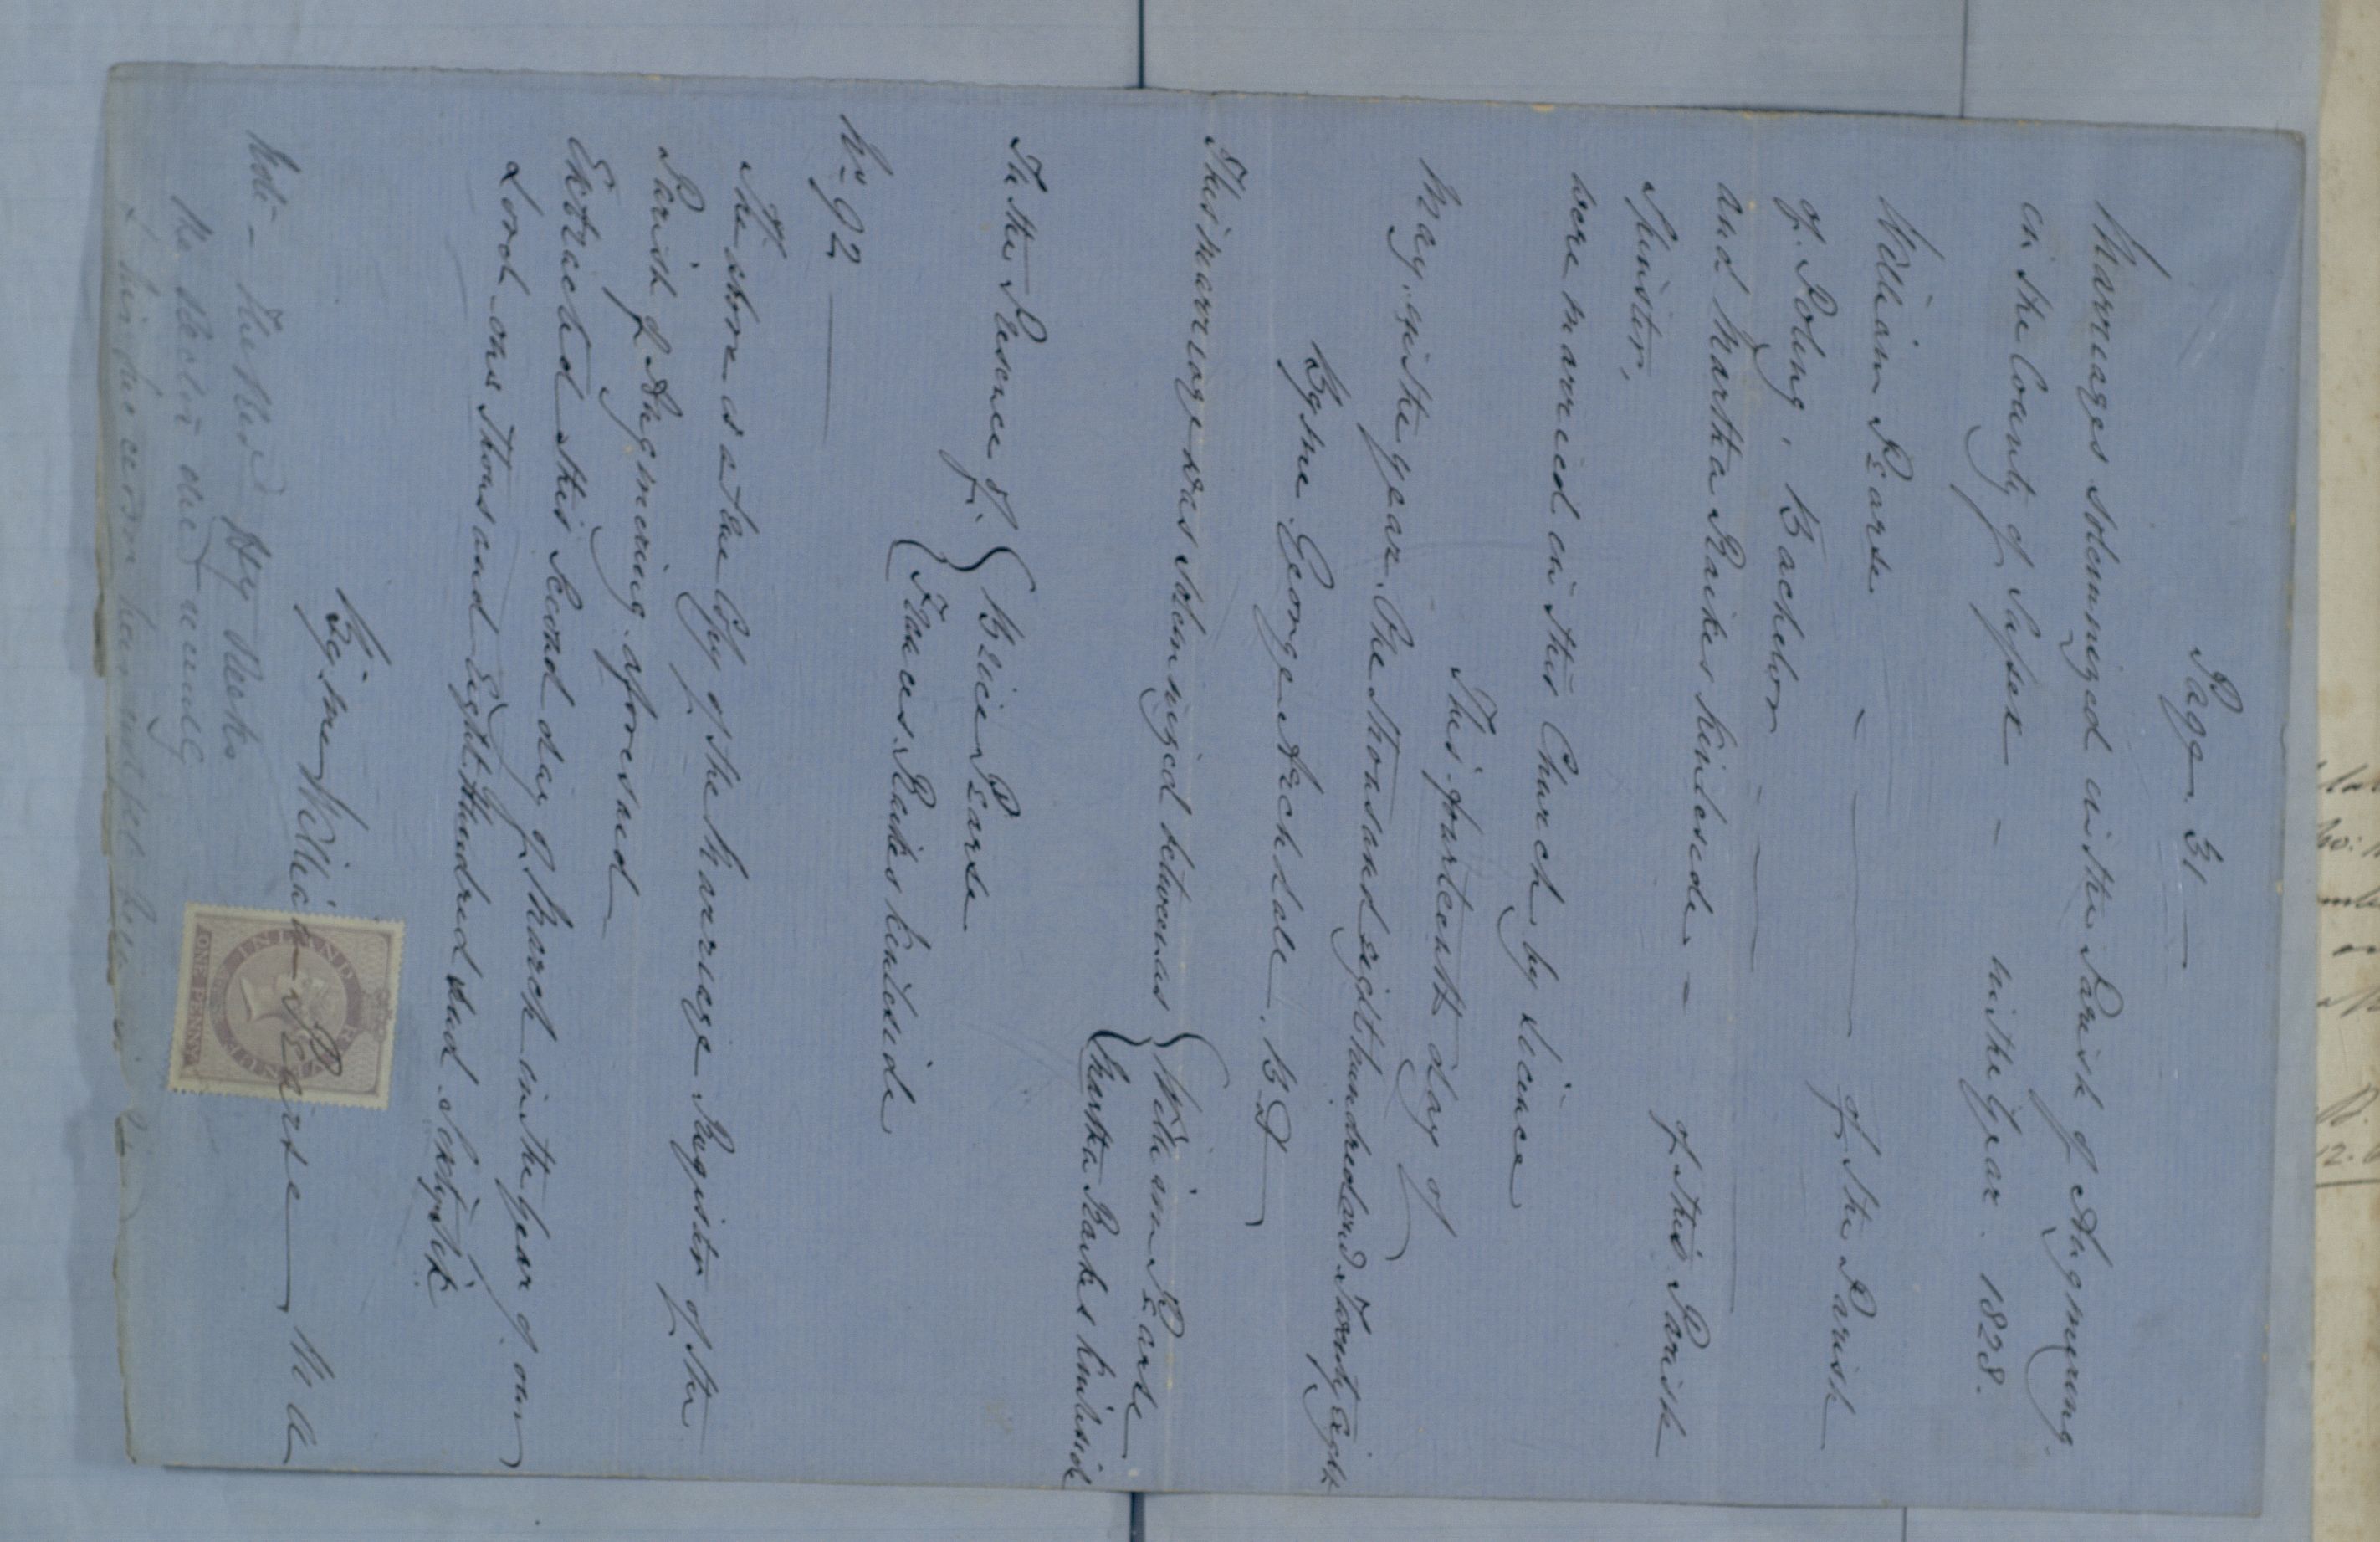 Page. 31 —
Marriages Solemnized in the Parish of Angmering
in the County of Sussex — — in the Year. 1828.
William Pearse — — — of the Parish
of Poling, Bachelor — — —
and Martha Raikes Heuleside — — of this Parish
Spinster,
were married in this Church by Licence
This fourteenth day of
May, in the year One thousand eight hundred and Twenty Eight
By me George Archdale. B D
This marriage was Solemnized between us { William Pearse
Martha Raikes Heuleside
In the Presence of. { Brice Pearse
Frances Raikes Heuleside
No 92 —
The above is a true Copy of the Marriage Register of the
Parish of Angmering aforesaid —
Extracted this Second day of March in the Year of our
Lord one Thousand Eight Hundred and Sixty Six.
By me William Pearse — M A
INLAND REVENUE
ONE PENNY